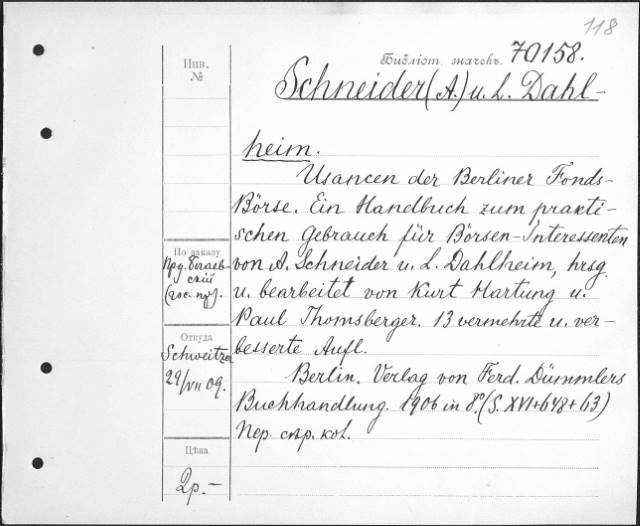 118
Библіот. значекъ. 70158.
Инв.
№
Schneider (A.) u. L. Dahl-
heim.
Usancen der Berliner Fonds-
Börse. Ein Handbuch zum prakti-
schen Gebrauch für Börsen-Interessenten
von A. Schneider u. L. Dahlheim, hrsg.
u. bearbeitet von Kurt Hartung u.
Paul Thomsberger. 13 vermehrte u. ver-
besserte Aufl.
Berlin. Verlag von Ferd. Dümmlers
Buchhandlung. 1906 in 8º. (S. XVI+648+63)
Пер.
По заказу
Откуда
Schweitzer
29/VII 09.
Цѣна
2р.-